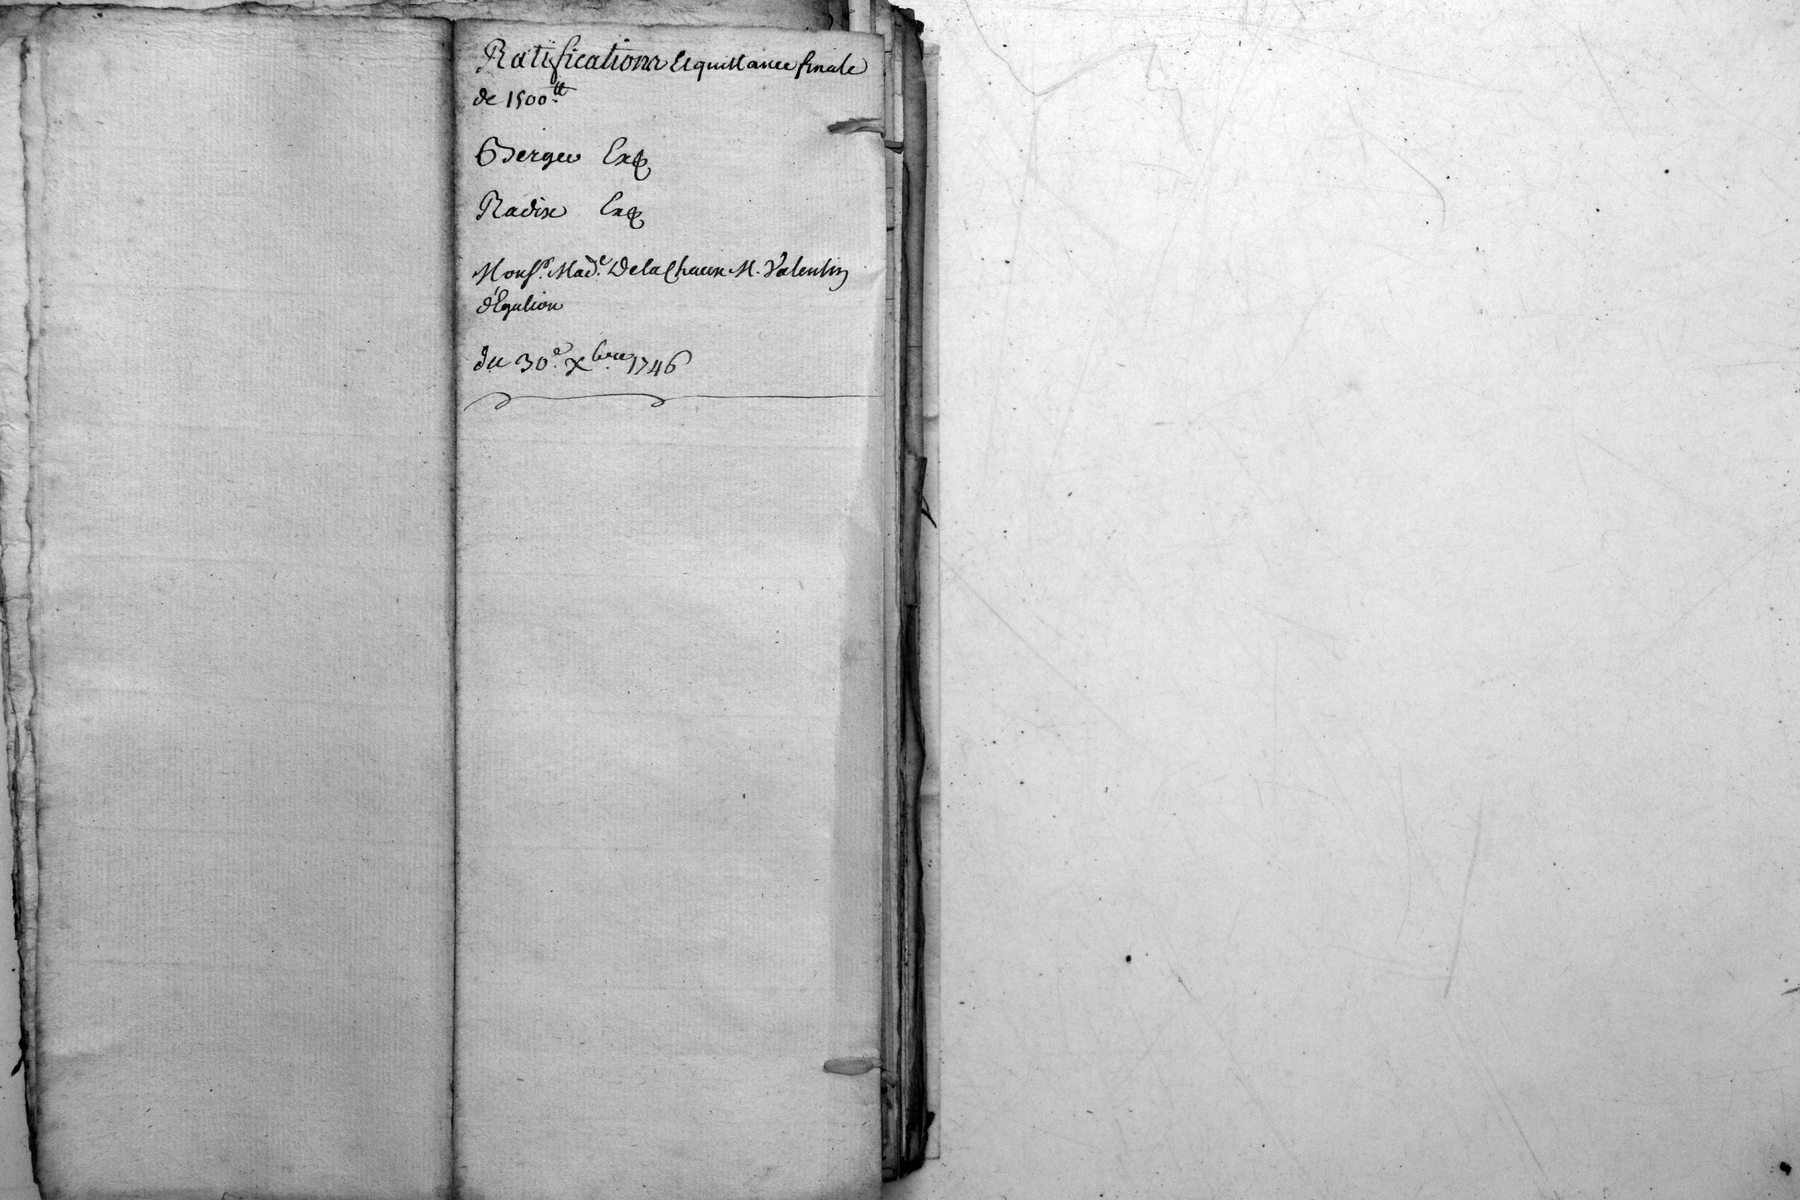 Ratification Et quittance finale
de 1500.tt
Berger Exp
Radix Exp
Monsr. Made. Delachaux M. Valentin
d'Egulion
du 30e. Xbre. 1746